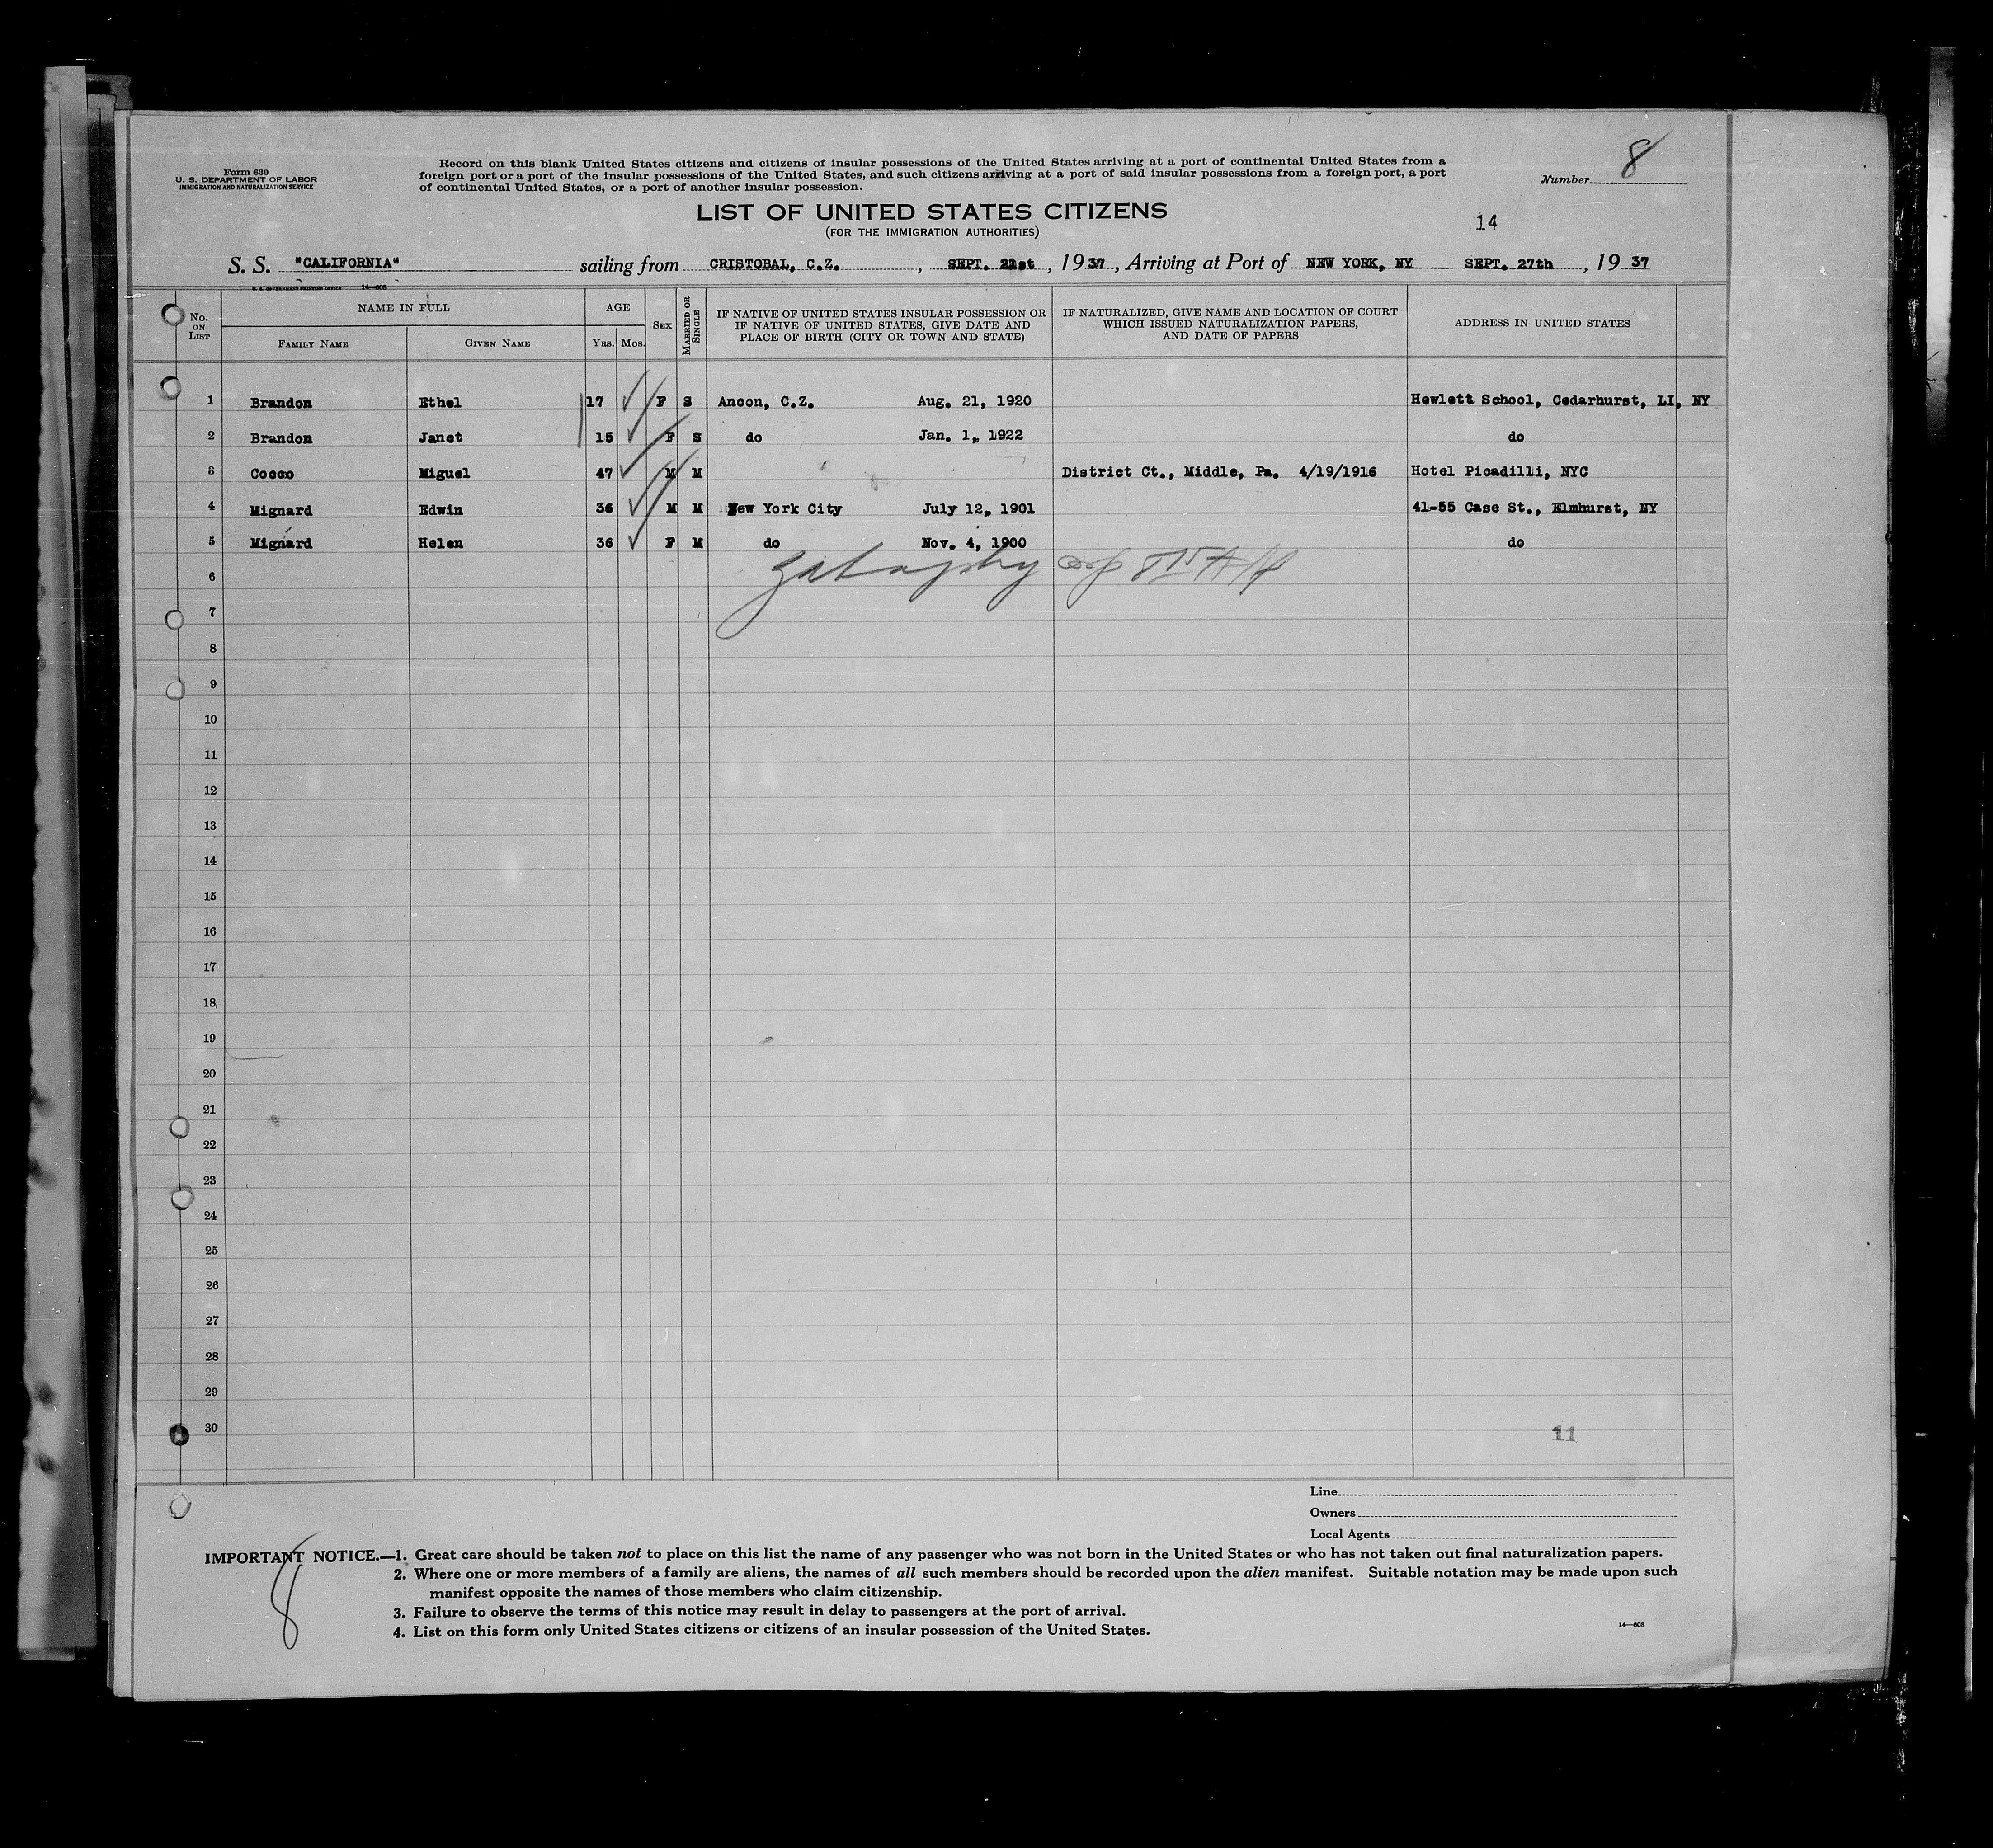 Form 630
U. S. DEPARTMENT OF LABOR
IMMIGRATION AND NATURALIZATION SERVICE
Record on this blank United States citizens and citizens of insular possessions of the United States arriving at a port of continental United States from a
foreign port or a port of the insular possessions of the United States, and such citizens arriving at a port of said insular possessions from a foreign port, a port
of continental United States, or a port of another insular possession.
Number 8
LIST OF UNITED STATES CITIZENS
(FOR THE IMMIGRATION AUTHORITIES)
14
S. S. "CALIFORNIA" sailing from CRISTOBAL, C.Z. , SEPT. 21st , 1937 , Arriving at Port of NEW YORK, NY SEPT. 27th , 19 37
U. S. GOVERNMENT PRINTING OFFICE 14—608
No. ON LIST
NAME IN FULL
FAMILY NAME GIVEN NAME
AGE
YRS. MOS.
SEX
MARRIED OR SINGLE
IF NATIVE OF UNITED STATES INSULAR POSSESSION OR
IF NATIVE OF UNITED STATES, GIVE DATE AND
PLACE OF BIRTH (CITY OR TOWN AND STATE)
IF NATURALIZED, GIVE NAME AND LOCATION OF COURT
WHICH ISSUED NATURALIZATION PAPERS,
AND DATE OF PAPERS
ADDRESS IN UNITED STATES
1 Brandon Ethel 17 F S Ancon, C.Z. Aug. 21, 1920 Hewlett School, Cedarhurst, LI, NY
2 Brandon Janet 15 F S do Jan. 1, 1922 do
3 Cocco Miguel 47 M M District Ct., Middle, Pa. 4/19/1916 Hotel Picadilli, NYC
4 Mignard Edwin 36 M M New York City July 12, 1901 41-55 Case St., Elmhurst, NY
5 Mignard Helen 36 F M do Nov. 4, 1900 do
6
7
8
9
10
11
12
13
14
15
16
17
18
19
20
21
22
23
24
25
26
27
28
29
30
11
Line
Owners
Local Agents
IMPORTANT NOTICE.—1. Great care should be taken not to place on this list the name of any passenger who was not born in the United States or who has not taken out final naturalization papers.
2. Where one or more members of a family are aliens, the names of all such members should be recorded upon the alien manifest. Suitable notation may be made upon such
manifest opposite the names of those members who claim citizenship.
3. Failure to observe the terms of this notice may result in delay to passengers at the port of arrival.
4. List on this form only United States citizens or citizens of an insular possession of the United States.
14—608
8